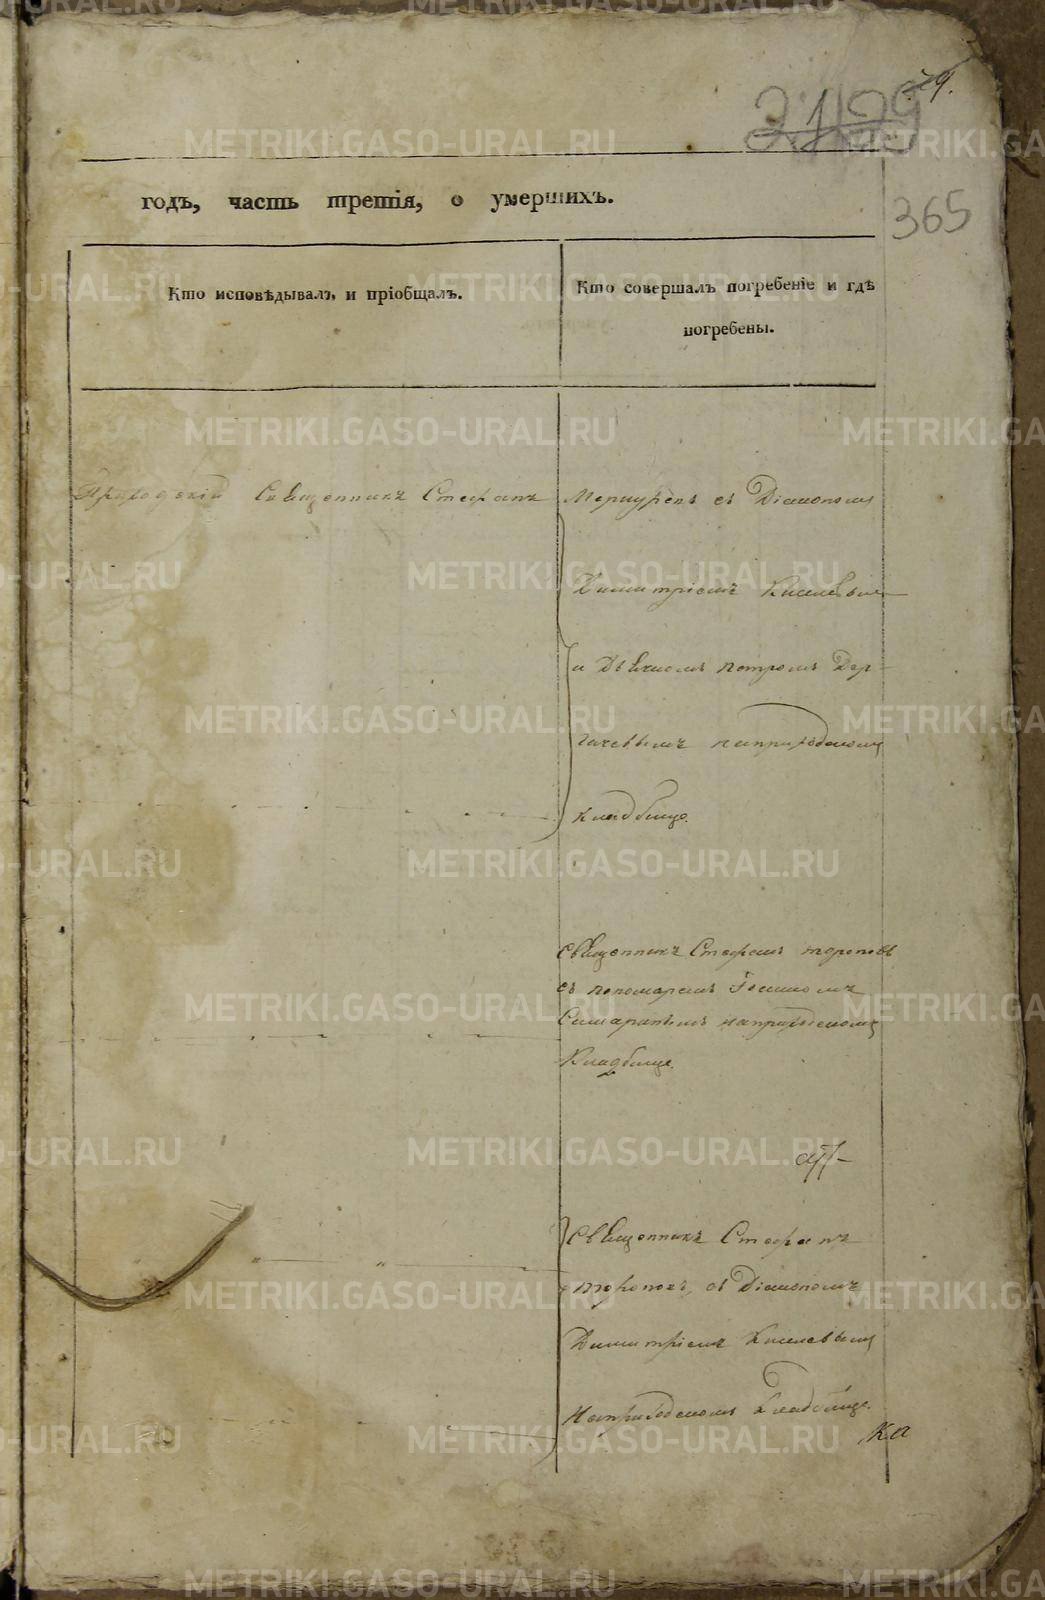 21/29
365
годъ, часть третія, о умершихъ.
Кто исповѣдывалъ и пріобщалъ.
Кто совершалъ погребеніе и гдѣ
погребены.
Приходскій Священникъ Стефанъ
съ Діакономъ
Димитріемъ Киселевым
и Дьячкомъ петромъ Дер-
гачевымъ наприходскомъ
кладбище.
Священникъ Стефанъ тороповъ
съ пономаремъ
наприходскомъ
Кладбище.
Священникъ Стефанъ
тороповъ, съ Діакономъ
Димитріемъ Киселевымъ
Наприходскомъ Кладбище.
METRIKI.GASO-URAL.RU